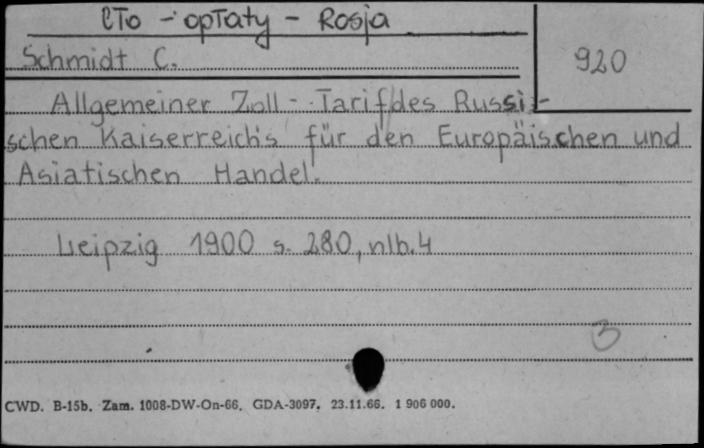 Cło - opłaty - Rosja
Schmidt C.
920
Allgemeiner Zoll - Tarif des Russi-
schen Kaiserreich's für den Europäischen und
Asiatischen Handel.
Leipzig 1900 s. 280, nlb. 4
3
CWD. B-15b. Zam. 1008-DW-On-66. GDA-3097. 23.11.66. 1 906 000.